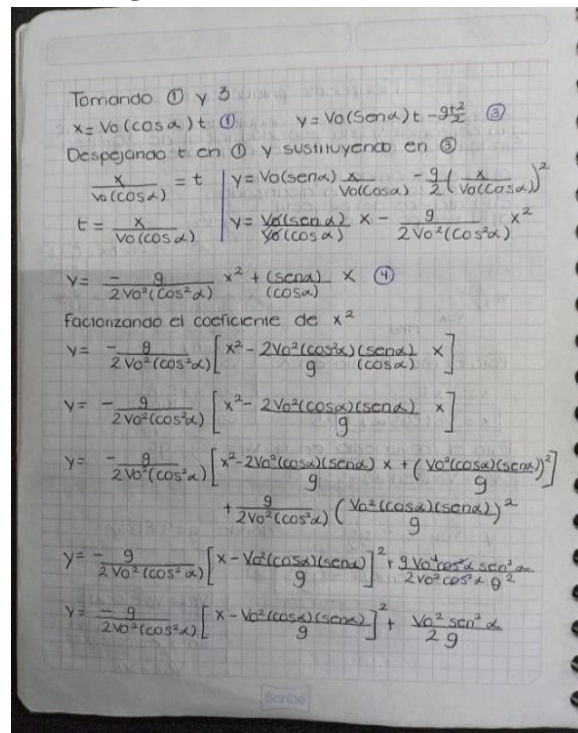 Tomando ① y 3
x = Vo (cos α) t ① y = Vo (Sen α) t - gt²/2 ③
Despejando t en ① y sustituyendo en ③
x/Vo(cos α) = t | y = Vo(sen α) x/Vo(cos α) - g/2 (x/Vo(cos α))²
t = x/Vo(cos α) | y = Vo(sen α)/Vo(cos α) x - g/2Vo²(cos²α) x²
y = -g/2Vo²(cos²α) x² + (sen α)/(cos α) x ④
Factorizando el coeficiente de x²
y = -g/2Vo²(cos²α) [x² - 2Vo²(cos²α)(sen α)/g(cos α) x]
y = -g/2Vo²(cos²α) [x² - 2Vo²(cos α)(sen α)/g x]
y = -g/2Vo²(cos²α) [x² - 2Vo²(cos α)(sen α)/g x + (Vo²(cos α)(sen α)/g)²]
+ g/2Vo²(cos²α) (Vo²(cos α)(sen α)/g)²
y = -g/2Vo²(cos²α) [x - Vo²(cos α)(sen α)/g]² + g Vo⁴ cos²α sen²α/2Vo² cos²α g²
y = -g/2Vo²(cos²α) [x - Vo²(cos α)(sen α)/g]² + Vo² sen²α/2g
Scribe